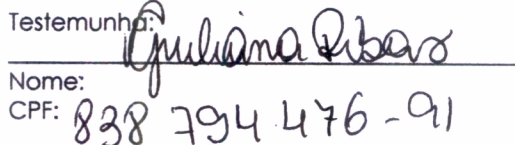 Testemunha: Giuliana Ribas
Nome:
CPF: 838 794 476-91